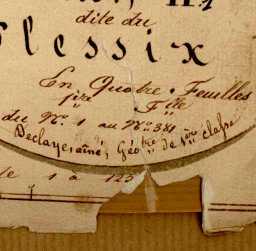 N.1
dite du
Plessix
En Quatre Feuilles
1ère F.lle
du N.o 1 au N.o 381
Declaye, aîné, Géo.tre de 1ère classe
le 1 à 125